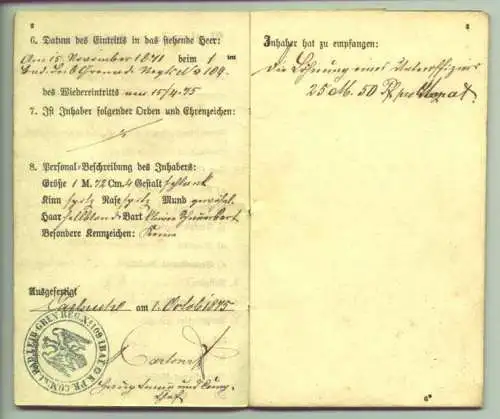 2
6. Datum des Eintritts in das stehende Heer:
Am 15. November 1871 beim 1 ten
Bad. Leib Grenad. Regt. No 109.
des Wiedereintritts am 15/4 75
7. Ist Inhaber folgender Orden und Ehrenzeichen:
8. Personal-Beschreibung des Inhabers:
Größe 1 M. 72 Cm. 4 Gestalt schlank
Kinn spitz Nase spitz Mund gewöhnl.
Haar hellblond Bart kleiner Schnurrbart
Besondere Kennzeichen: Keine
Ausgefertigt
Carlsruhe am 1. Octob 1875
Hauptmann und Comp
Chef
3
Inhaber hat zu empfangen:
die Löhnung eines Unteroffiziers
25 M. 50 Pf. pro Monat.